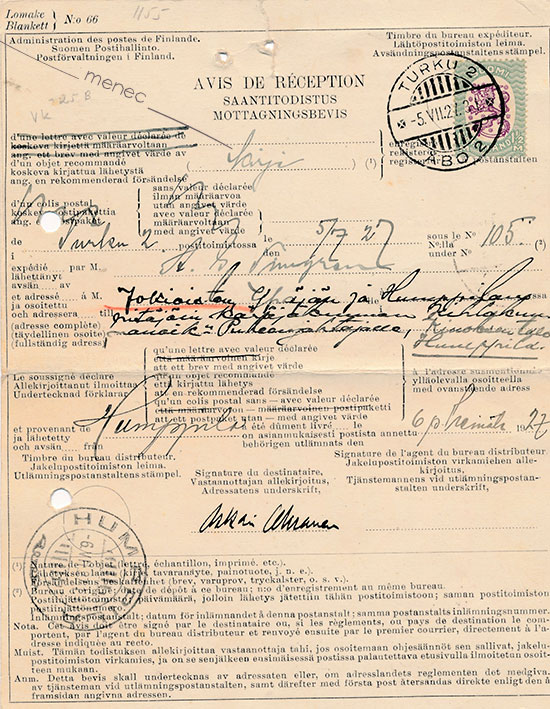 Lomake
Blankett } N:o 66
1155
Administration des postes de Finlande.
Suomen Postihallinto.
Postförvaltningen i Finland.
Timbre du bureau expéditeur.
Lähtöpostitoimiston leima.
Avsändningspostanstaltens stempel.
menec
AVIS DE RÉCEPTION
SAANTITODISTUS
MOTTAGNINGSBEVIS
TURKU 2
-5.VII.27.
ÅBO 2
d'une lettre avec valeur déclarée
koskeva kirjettä määräarvoltaan
ang. ett brev med angivet värde av
d'un objet recommandé
koskeva kirjattua lähetystä
ang. en rekommenderad försändelse
Kirje
(¹)
enregistré
d'un colis postal
koskeva postipakettia
ang. postpaket
sans valeur déclarée
ilman määräarvoa
utan angivet värde
avec valeur déclarée
määräarvoltaan
med angivet värde
de
i
Turku 2
postitoimistossa
5/7 27
sous le No
N:olla
under No
105.
(²)
expédié par M.
lähetänyt
avsänt av
et adressé à M.
ja osoitettu
och adresserat till
(adresse complète)
(täydellinen osoite)
(fullständig adress)
Jokioisten, Ypäjän ja Humppilan
Humppila
Le soussigné déclare
Allekirjoittanut ilmoittaa
Undertecknad förklarar
qu'une lettre avec valeur déclarée
että määräarvoinen kirje
att ett brev med angivet värde
qu'un objet recommandé
että kirjattu lähetys
att en rekommenderad försändelse
qu'un colis postal — avec valeur déclarée
että — määräarvoinen — postipaketti
att ett postpaket utan — med angivet värde
à l'adresse susmentionnée
ylläolevalla osoitteella
med ovanstående adress
et provenant de
ja lähetetty
och avsänt från
Humppila
a été dûment livré le
on asianmukaisesti postista annettu
behörigen utlämnats den
6 p heinäk. 27
Timbre du bureau distributeur.
Jakelupostitoimiston leima.
Utlämningspostanstaltens stempel.
Signature du destinataire,
Vastaanottajan allekirjoitus,
Adressatens underskrift,
Signature de l'agent du bureau distributeur.
Jakelupostitoimiston virkamiehen allekirjoitus,
Tjänstemannens vid utlämningspostanstalten underskrift,
HUMP
(¹) Nature de l'objet (lettre, échantillon, imprimé, etc.).
Lähetyksen laatu (kirje, tavaranäyte, painotuote, j. n. e.).
Försändelsens beskaffenhet (brev, varuprov, trycksalster, o. s. v.).
(²) Bureau d'origine; date de dépôt à ce bureau; n:o d'enregistrement au même bureau.
Postiinjättöpaikka; päivämäärä, jolloin lähetys jätettiin tähän postitoimistoon; saman postitoimiston
postiinjättönumero.
Inlämningspostanstalt; datum för inlämnandet å denna postanstalt; samma postanstalts inlämningsnummer.
Nota. Cet avis doit être signé par le destinataire ou, si les règlements, du pays de destination le comportent,
par l'agent du bureau distributeur et renvoyé ensuite par le premier courrier, directement à l'adresse
indiquée au recto.
Muist. Tämän todistuksen allekirjoittaa vastaanottaja tahi, jos osoitemaan ohjesäännöt sen sallivat, jakelupostitoimiston
virkamies, ja on se senjälkeen ensimäisessä postissa palautettava etusivulla ilmoitetun osoitteen
mukaan.
Anm. Detta bevis skall undertecknas av adressaten eller, om adresslandets reglementen det medgiva,
av tjänsteman vid utlämningspostanstalten, samt därefter med första post återsändas direkte enligt den å
framsidan angivna adressen.